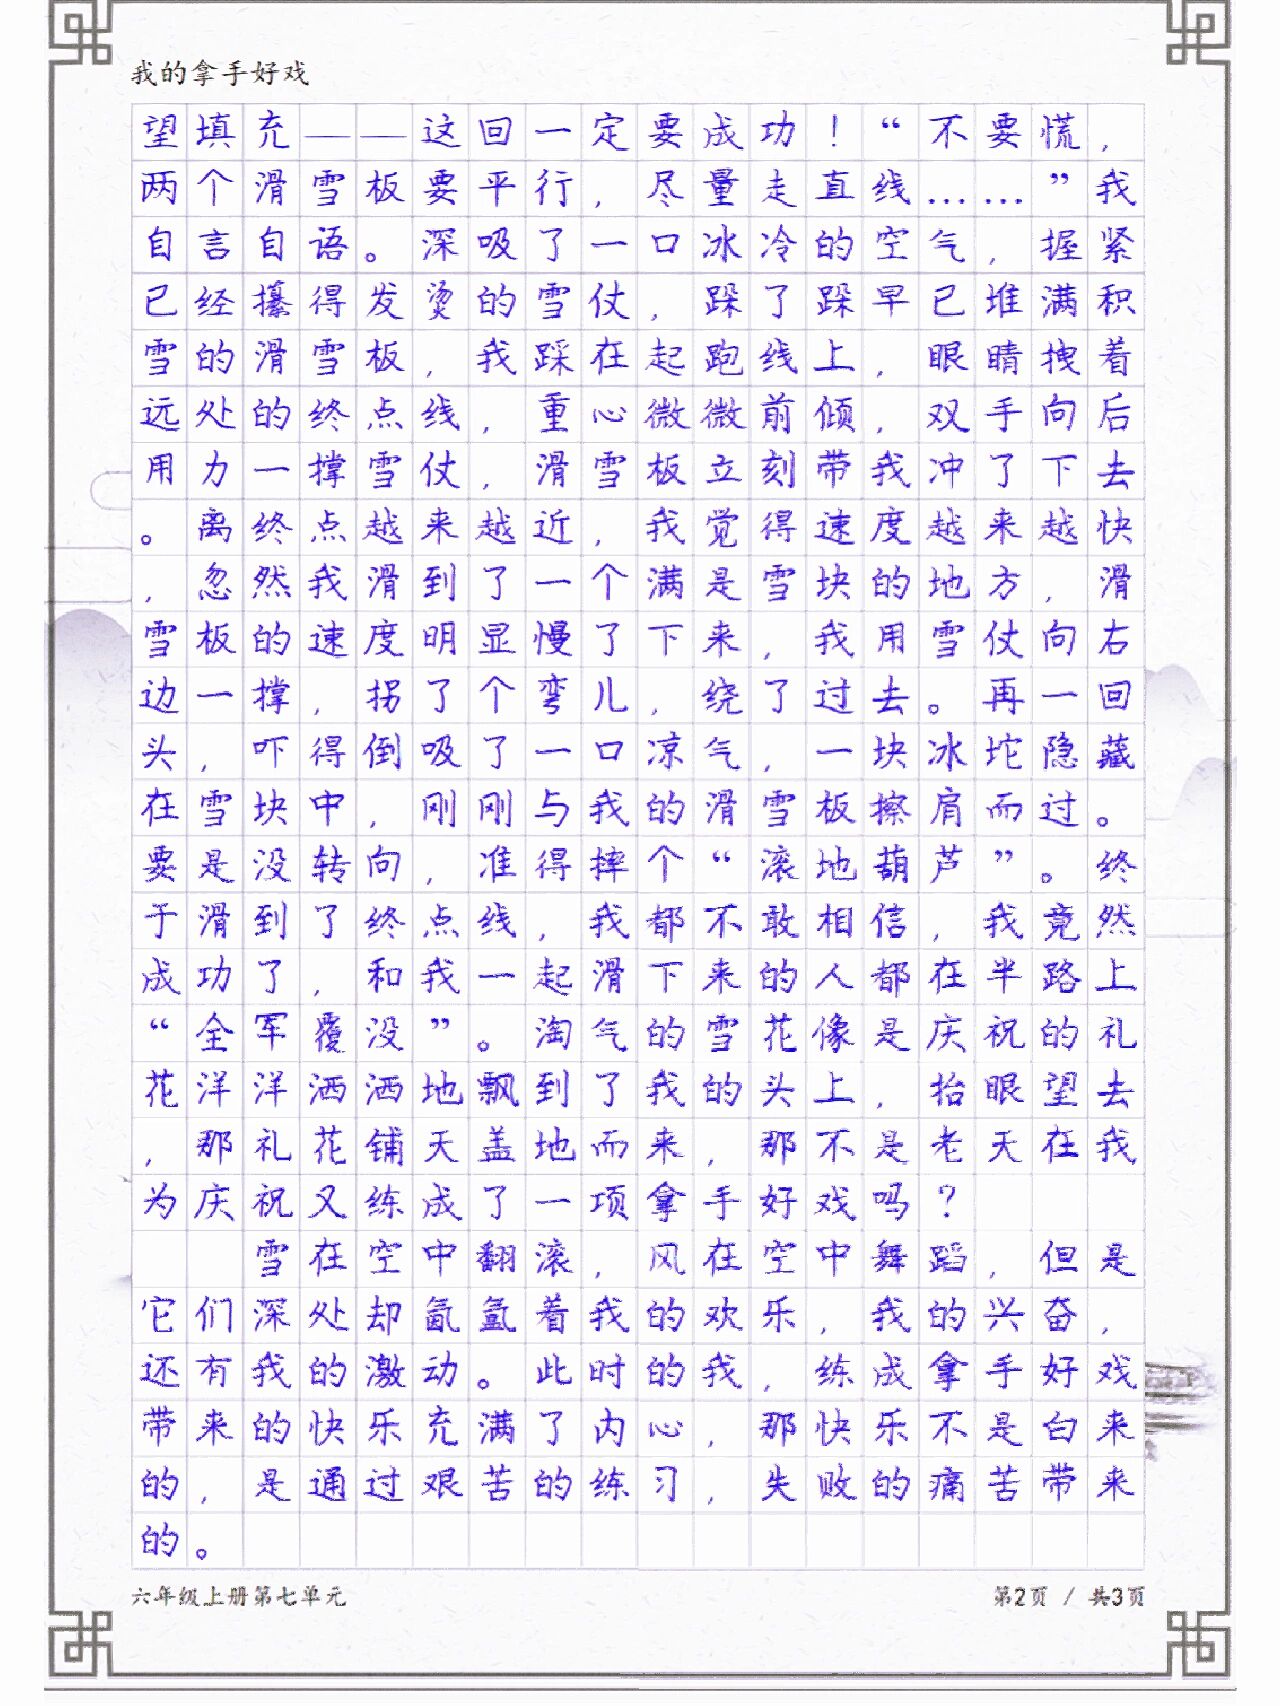 我的拿手好戏
望填充——这回一定要成功！“不要慌，
两个滑雪板要平行，尽量走直线……”我
自言自语。深吸了一口冰冷的空气，握紧
已经攥得发烫的雪仗，跺了跺早已堆满积
雪的滑雪板，我踩在起跑线上，眼睛拽着
远处的终点线，重心微微前倾，双手向后
用力一撑雪仗，滑雪板立刻带我冲了下去
。离终点越来越近，我觉得速度越来越快
，忽然我滑到了一个满是雪块的地方，滑
雪板的速度明显慢了下来，我用雪仗向右
边一撑，拐了个弯儿，绕了过去。再一回
头，吓得倒吸了一口凉气，一块冰坨隐藏
在雪块中，刚刚与我的滑雪板擦肩而过。
要是没转向，准得摔个“滚地葫芦”。终
于滑到了终点线，我都不敢相信，我竟然
成功了，和我一起滑下来的人都在半路上
“全军覆没”。淘气的雪花像是庆祝的礼
花洋洋洒洒地飘到了我的头上，抬眼望去
，那礼花铺天盖地而来，那不是老天在我
为庆祝又练成了一项拿手好戏吗？
雪在空中翻滚，风在空中舞蹈，但是
它们深处却氤氲着我的欢乐，我的兴奋，
还有我的激动。此时的我，练成拿手好戏
带来的快乐充满了内心，那快乐不是白来
的，是通过艰苦的练习，失败的痛苦带来
的。
六年级上册第七单元 第2页 / 共3页